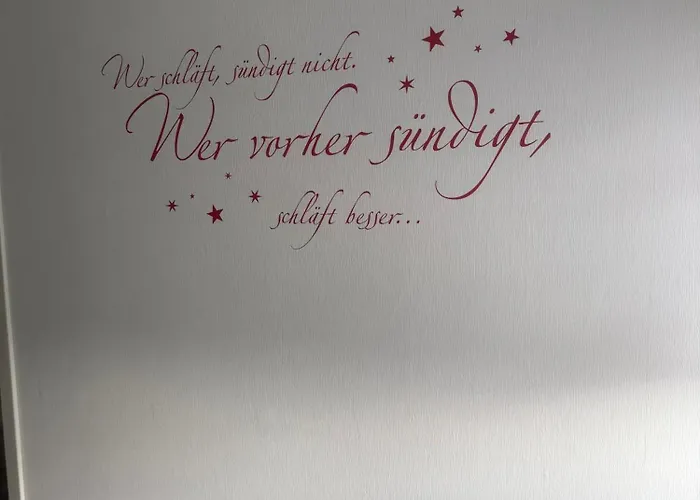 Wer schläft, sündigt nicht.
Wer vorher sündigt,
schläft besser...